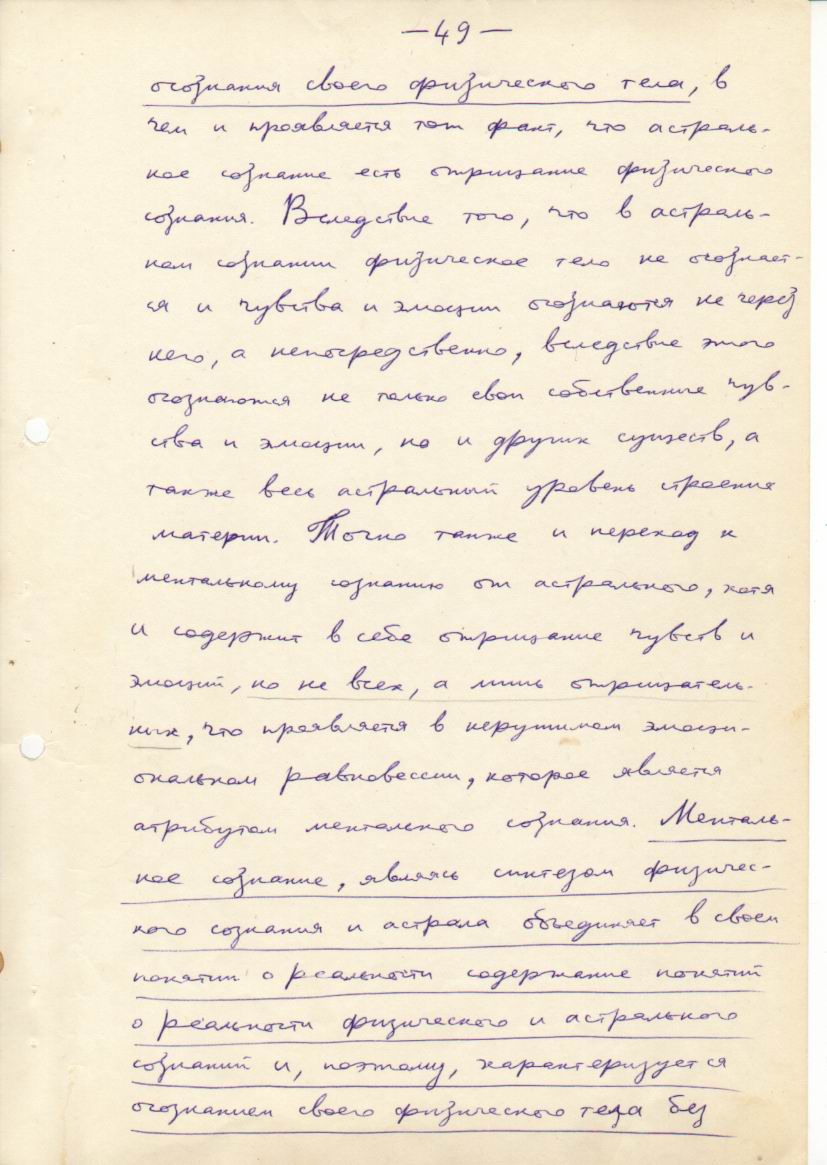 —49—
осознания своего физического тела, в
чем и проявляется тот факт, что астраль-
ное сознание есть отрицание физического
сознания. Вследствие того, что в астраль-
ном сознании физическое тело не осознает-
ся и чувства и эмоции осознаются не через
него, а непосредственно, вследствие этого
осознаются не только свои собственные чув-
ства и эмоции, но и других существ, а
также весь астральный уровень строения
материи. Точно также и переход к
ментальному сознанию от астрального, хотя
и содержит в себе отрицание чувств и
эмоций, но не всех, а лишь отрицатель-
ных, что проявляется в нерушимом эмоци-
ональном равновессии, которое является
атрибутом ментального сознания. Менталь-
ное сознание, являясь синтезом физичес-
кого сознания и астрала объединяет в своем
понятии о реальности содержание понятий
о реальности физического и астрального
сознаний и, поэтому, характеризуется
осознанием своего физического тела без